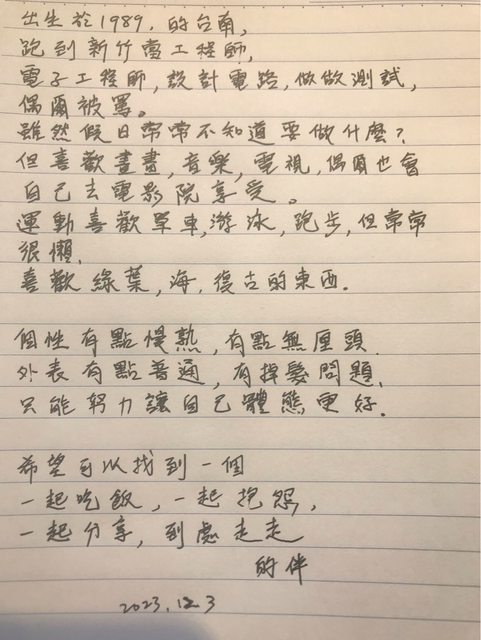 出生於1989，的台南，
跑到新竹當工程師，
電子工程師，設計電路，做做測試，
偶爾被罵。
雖然假日常常不知道要做什麼？
但喜歡畫畫，音樂，電視，偶爾也會
自己去電影院享受。
運動喜歡單車，游泳，跑步，但常常
很懶，
喜歡綠葉，海，復古的東西．
個性有點慢熟，有點無厘頭
外表有點普通，有掉髮問題，
只能努力讓自己體態更好．
希望可以找到一個
一起吃飯，一起抱怨，
一起分享，到處走走
的伴
2023.12.3